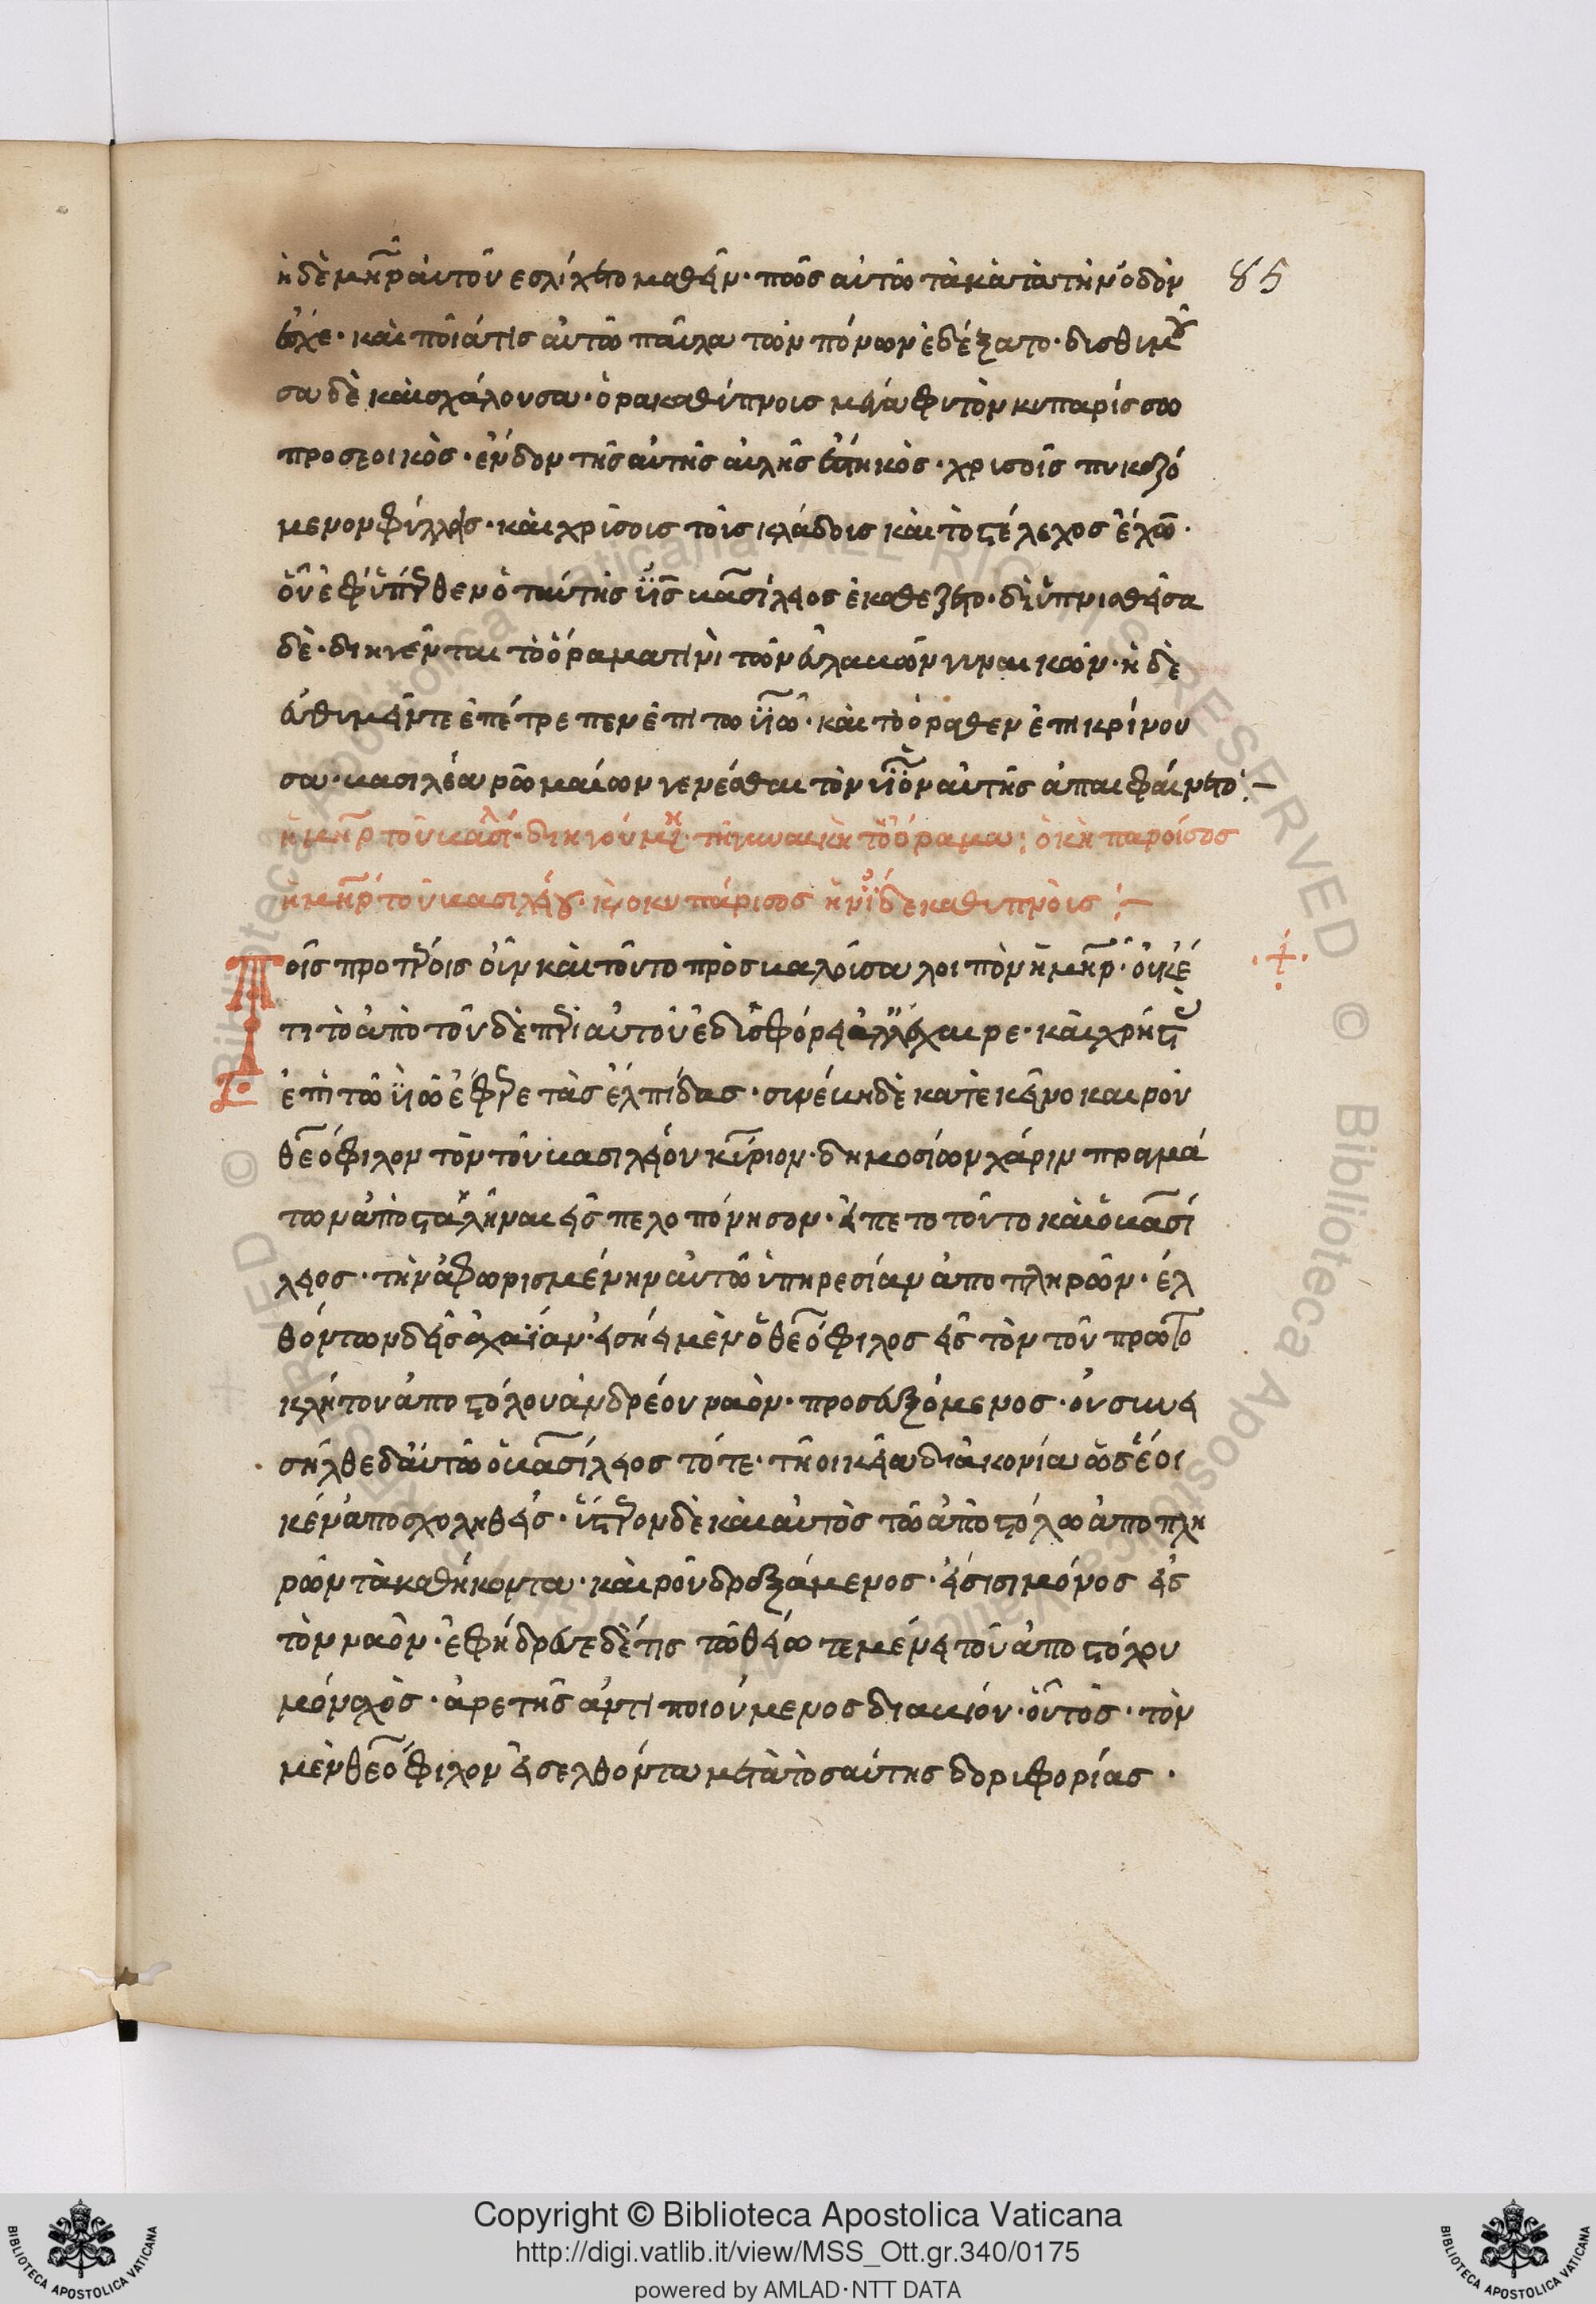 ἡ δὲ μηρ αὐτοῦ εσλίχετο μαθεῖν· πῶς αὐτῶ τὰ κατὰ τὴν ὁδὸν
85
ἔσχε· καὶ ποῖά τις αὐτῶ παῦλα τῶν πόνων ἐδέξατο· δισθιμοῦ
σα δὲ καὶ σχάλουσα· ὁρα καθύπνοις μετὰ φυτὸν κυπαρίσσω
προσεοικὸς· ἔνδον τῆς αὐτῆς αυλῆς ἑστηκὸς· χρισοῖς πυκαζό
μενον φύλλοις· καὶ χρῖσοις τοῖς κλάδοις καὶ τὸ στέλεχος ἔχων·
οὗ ἐφ ὕπερθεν ὁ ταύτης υἱς βασίλειος ἐκαθεζετο· διϋπνιαθεῖσα
δὲ· διηγεῖται τὸ ὅραμα τινὶ τῶν εὐλαβῶν γυναικῶν· ἡ δὲ
εὐθιμεῖν τε ἐπέτρεπεν ἐπι τω υἱῶ· καὶ τὸ ὁραθεν ἐπικρίνου
σα· βασιλέα ρωμαίων γενέσθαι τὸν υἱὸν αὐτῆς ἀπαιφαίνετο :~
ἡ μηρ τοῦ βασιλ διηγουμένη τὴ γυναικὴ τὸ ὅραμα: ὁ κηπαροίσος
ἡ μηρ τοῦ βασιλείου· κ ο κυπάρισος ἣν ἴδε καθ υπνοις :~
Τοῖς προτέροις οὖν καὶ τοῦτο πρὸσβαλοῦσα λοιπὸν ἡ μηρ· οὐκέ
τι τὸ ἀπὸ τοῦδε περὶ αυτοῦ ἐδισφόρει ἀλλ ἔχαιρε· καὶ χρηστὰς
ἐπι τῶ υἱῶ ἔφερε τὰς ἐλπίδας· συνέβη δὲ κατ εκεῖνο καιροῦ
θεόφιλον τὸν τοῦ βασιλέου κύριον· δημοσίων χάριν πραγμά
των ἀποσταλῆναι εἰς πελοπόνησον· εἵπετο τοῦτο καὶ ὁ βασί
λειος· τὴν ἀφωρισμένην αὐτῶ ὑπηρεσίαν ἀποπληρῶν· ἐλ
θόντων δ εἰς ἀχαΐαν· εἰσήει μὲν ὁ θεόφιλος εἰς τὸν τοῦ πρωτο
κλήτου ἀποστόλου ἀνδρέου ναὸν· προσευξόμενος· οὐ συνει
σῆλθε δ αὐτῶ ὁ βασίλειος τότε· τῆ οικεία διακονία ὡς ἔοι
κεν ἀποσχοληθεὶς· ὕστερον δὲ καὶ αυτὸς τῶ ἀποστόλω ἀποπλη
ρῶν τὰ καθήκοντα· καιροῦ δροξάμενος· εἴσισι μόνος εἰς
τὸν ναὸν· ἐφήδρευε δέ τις τῶ θείω τεμένει τοῦ ἀποστόλου
μόναχὸς· ἀρετῆς ἀντιποιούμενος διαβίου· οὗτος· τὸν
μὲν θεόφιλον εἰσελθόντα μετὰ τοσαύτης δοριφορίας·
Copyright © Biblioteca Apostolica Vaticana
http://digi.vatlib.it/view/MSS_Ott.gr.340/0175
powered by AMLAD·NTT DATA